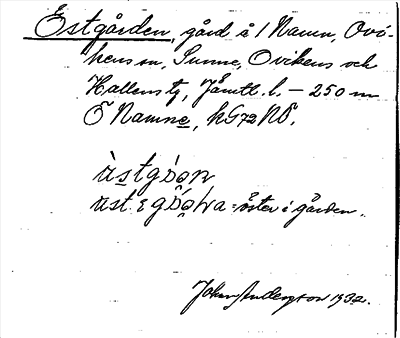 Östgården, gård å 1 Namn, Ovi-
kens sn, Sunne, Ovikens och
Hallens tg, Jämtl. l. – 250 m
Ö Namne, hG72NÖ.
östgɷ́ɷn
öst ɛ gɷ́ɷ̨ɷa = öster i gården.
Johan Anderson 1932.